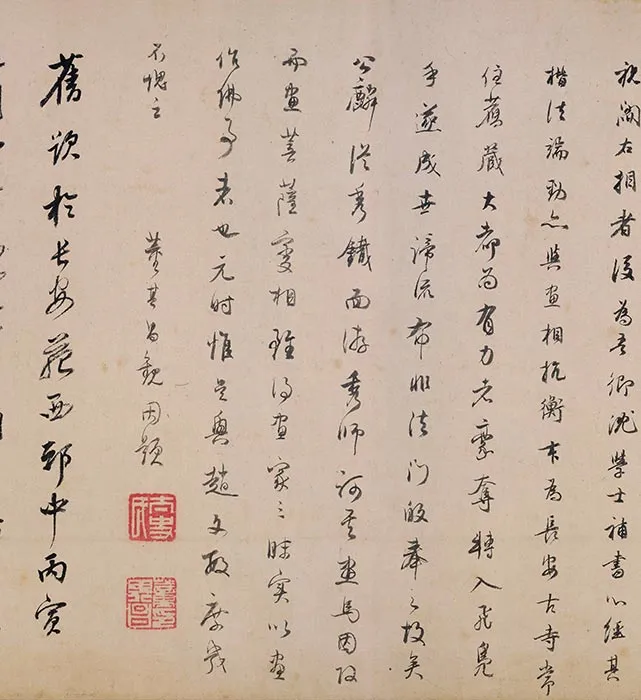 閻右相者後為吾鄉沈學士補書心經其
楷法端勁亦與畫相抗衡本為長安古寺常
住舊藏大都為有力者豪奪轉入飛鳧
手遂成世諦流布非法門皈奉之故矣
公麟從秀鐵面游秀師訶其畫馬因改
而畫菩薩變相雖得畫家三昧實以畫
作佛事者也元時惟吳興趙文敏庶幾
不愧之
董其昌觀因題
舊題於長安苑西邸中丙寅